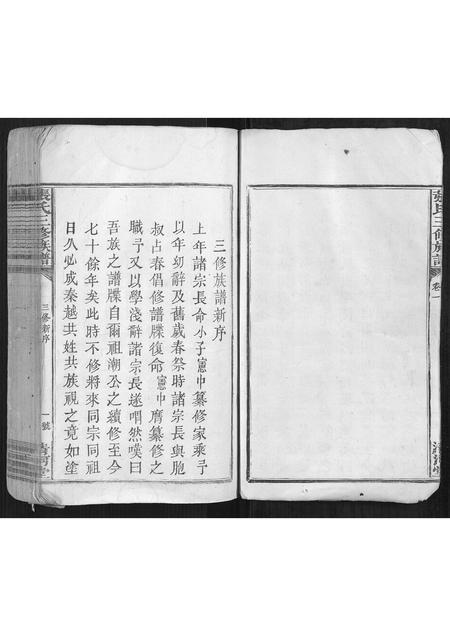 張氏三修族譜
卷一
清河堂
三修族譜新序
上年諸宗長命小子憲中纂修家乘予
以年幼辭及舊歲春祭時諸宗長與胞
叔占春倡修譜牒復命憲中膺纂修之
職予又以學淺辭諸宗長遂喟然嘆曰
吾族之譜牒自爾祖潮公之續修至今
七十餘年矣此時不修將來同宗同祖
日久必成秦越共姓共族視之竟如塗
張氏三修族譜
三修新序
一號
清河堂